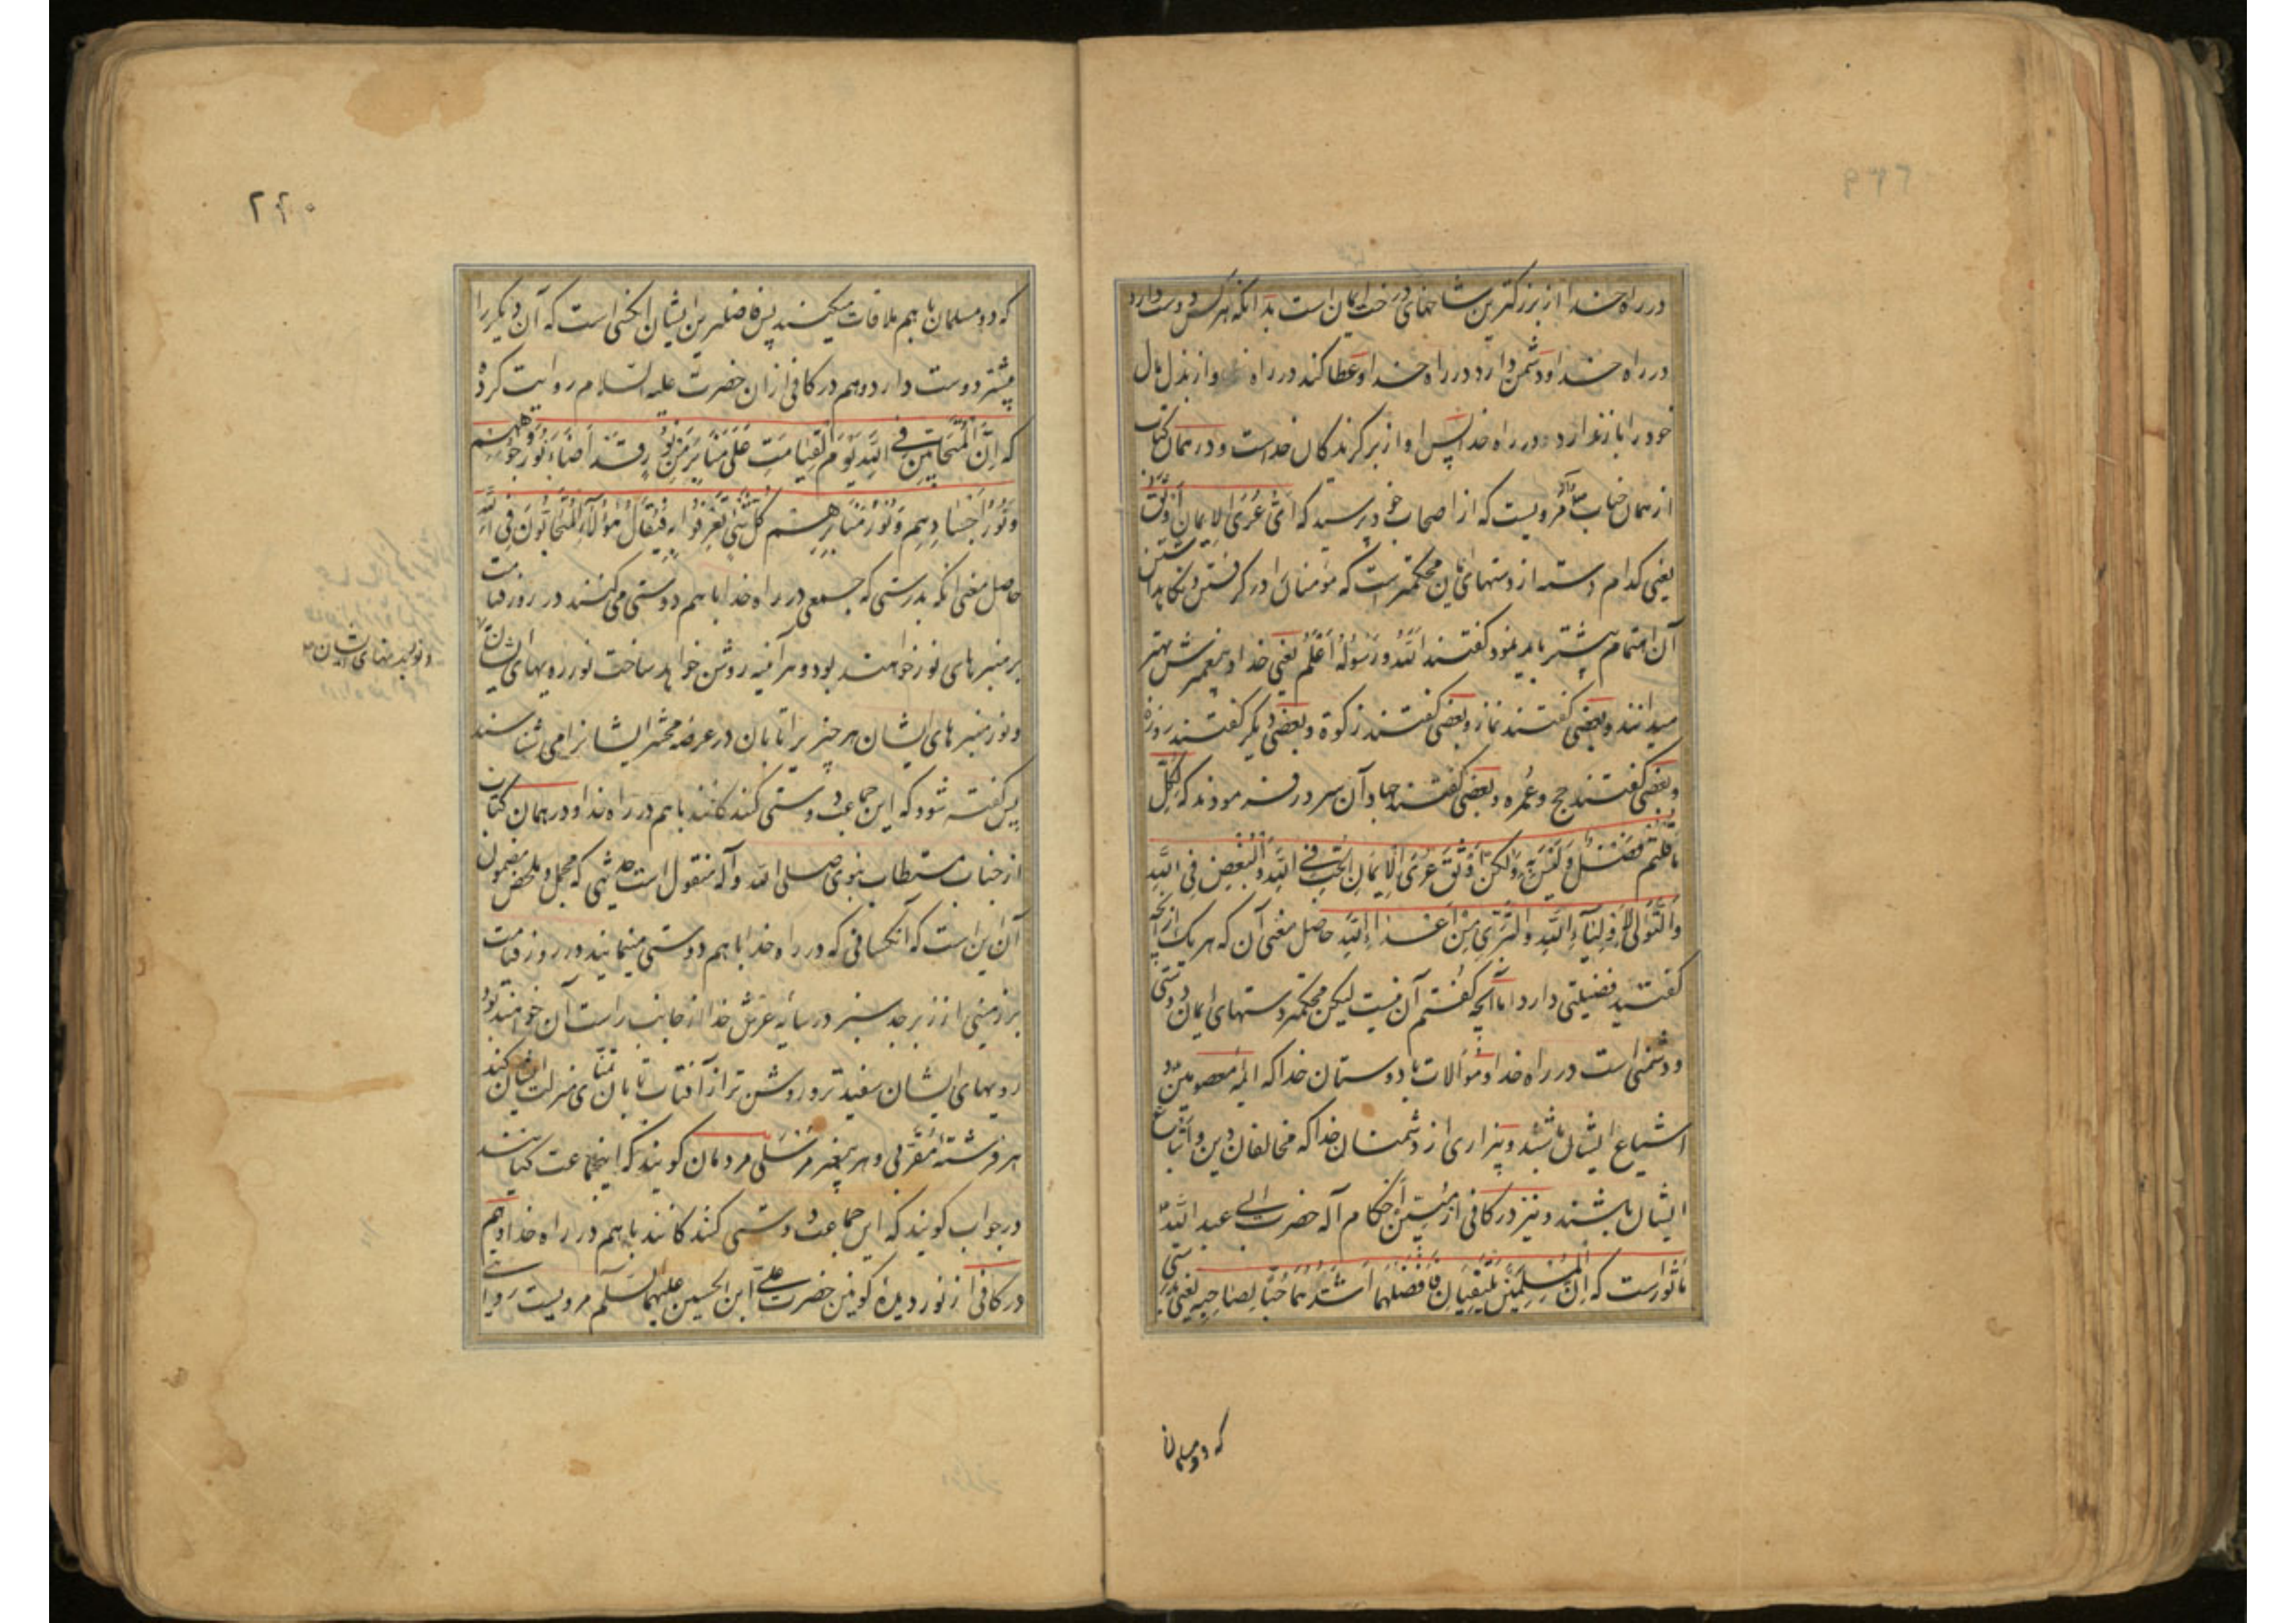 در راه خدا از بزرگترین شاخهای درخت ایمان است بدانکه هر کس دوست دارد
در راه خدا و دشمن دارد در راه خدا و عطا کند در راه و از بذل مال
خود را باز ندارد در راه خدا پس او از برگزیدگان خداست و در همان کتاب
از همان جناب مرویست که از اصحاب خود پرسید که اَیُّ عُرَی الاِیمانِ اَوثَقُ
یعنی کدام دسته از دستهای ایمان محکمتر است که مؤمنان را در گرفتن و نگاهداشتن
آن اهتمام بیشتر باید نمود گفتند اَللّهُ وَ رَسُولُهُ اَعْلَمُ یعنی خدا و پیغمبرش بهتر
میدانند و بعضی گفتند نماز و بعضی گفتند زکوة و بعضی دیگر گفتند روزه
و بعضی گفتند حج و عُمره و بعضی گفتند جهاد آن سرور فرمودند که لِکُلِّ
ما قُلتُم فَضلٌ وَ لَیسَ بِهِ وَلکِن اَوثَقُ عُرَی الاِیمانِ الحُبُّ فِی اللّهِ وَ البُغضُ فِی اللّهِ
وَ التَّوَلّی لِاَولِیآءِ اللّهِ وَ التَّبَرّی مِن اَعدآءِ اللّهِ حاصل معنی آن که هر یک از آنچه
گفتید فضیلتی دارد اما آنچه گفتم آن نیست لیکن محکمتر دستهای ایمان دوستی
و دشمنی است در راه خدا و مُوالات با دوستان خدا که ائمه معصومین و
اشیاع ایشان باشند و بیزاری از دشمنان خدا که مخالفان دین و اتباع
ایشان باشند و نیز در کافی از حضرت ابی عبد اللّه
مأثورست که اِنَّ المُسلِمَینِ یَلتَقِیانِ فَاَفضَلُهُما اَشَدُّهُما حُبّاً لِصاحِبِهِ یعنی بدرستی
که دو مسلمان
۲۲۰
که دو مسلمان با هم ملاقات میکنند پس فاضلترین ایشان آنکسی است که آن دیگر را
بیشتر دوست دارد و هم در کافی از آن حضرت علیه السّلام روایت کرده
که اِنَّ المُتَحابّینَ فِی اللّهِ یَومَ القِیامَتِ عَلی مَنابِرَ مِن نُورٍ قَد اَضآءَ نُورُ وُجُوهِهِم
وَ نُورُ اَجسادِهِم وَ نُورُ مَنابِرِهِم کُلَّ شَیءٍ یُعرَفُوا بِهِ فَیُقالُ هؤُلآءِ المُتَحابُّونَ فِی اللّه
حاصل معنی آنکه بدرستی که جمعی در راه خدا با هم دوستی می کنند در روز قیامت
بر منبرهای نور خواهند بود و هر آینه روشن خواهد ساخت نور رویهای ایشان
و نور بدنهای ایشان
و نور منبرهای ایشان هر چیز را تا بآن در عرصه محشر ایشانرا می شناسند
پس گفته شود که این جماعت دوستی کنندگانند با هم در راه خدا و در همان کتاب
از جناب مستطاب نبوی صلی اللّه و آله منقول است حدیثی که مجمل و ملخص مضمون
آن این است که آنکسانی که در راه خدا با هم دوستی مینمایند در روز قیامت
بر زمینی از زبرجد سبز در سایه عرش خدا از جانب راست آن خواهند بود
رویهای ایشان سفیدتر و روشن تر از آفتاب تابان تمنّای منزلت ایشان کند
هر فرشته مُقَرَّبی و هر پیغمبر مُرسَلی مردمان گویند که اینجماعت کیانند
در جواب گویند که این جماعت دوستی کنندگانند با هم در راه خدا و هم
در کافی از نور دیدهٔ کونین حضرت علی ابن الحسین علیهما السّلم مرویست روایت